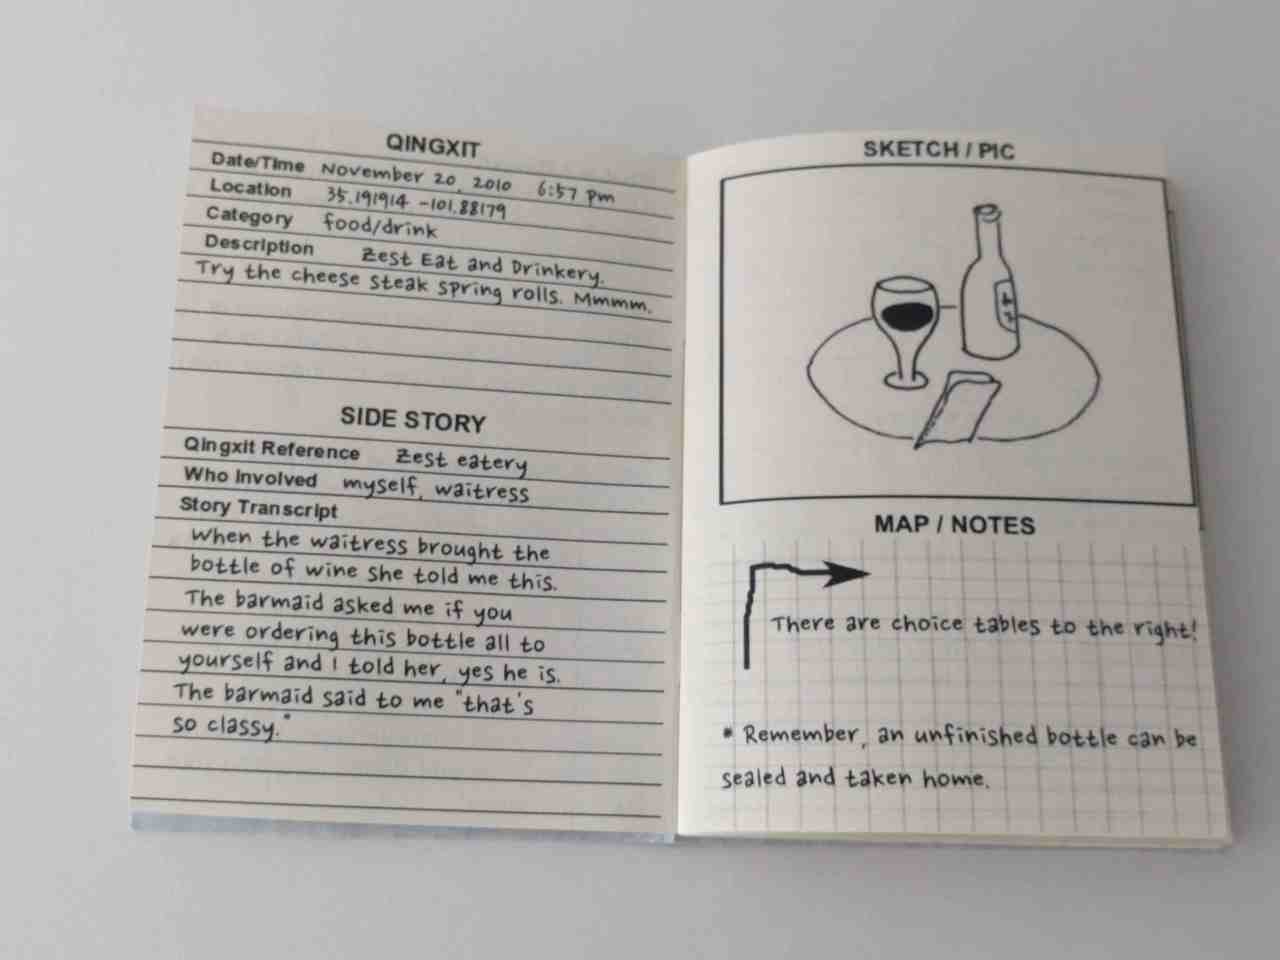 QINGXIT
Date/Time November 20, 2010 6:57 pm
Location 35.191914 -101.88179
Category food/drink
Description Zest Eat and Drinkery.
Try the cheese steak spring rolls. Mmmm.
SIDE STORY
Qingxit Reference Zest eatery
Who Involved myself, waitress
Story Transcript
When the waitress brought the
bottle of wine she told me this.
The barmaid asked me if you
were ordering this bottle all to
yourself and I told her, yes he is.
The barmaid said to me "that's
so classy."
SKETCH / PIC
MAP / NOTES
There are choice tables to the right!
* Remember, an unfinished bottle can be
sealed and taken home.